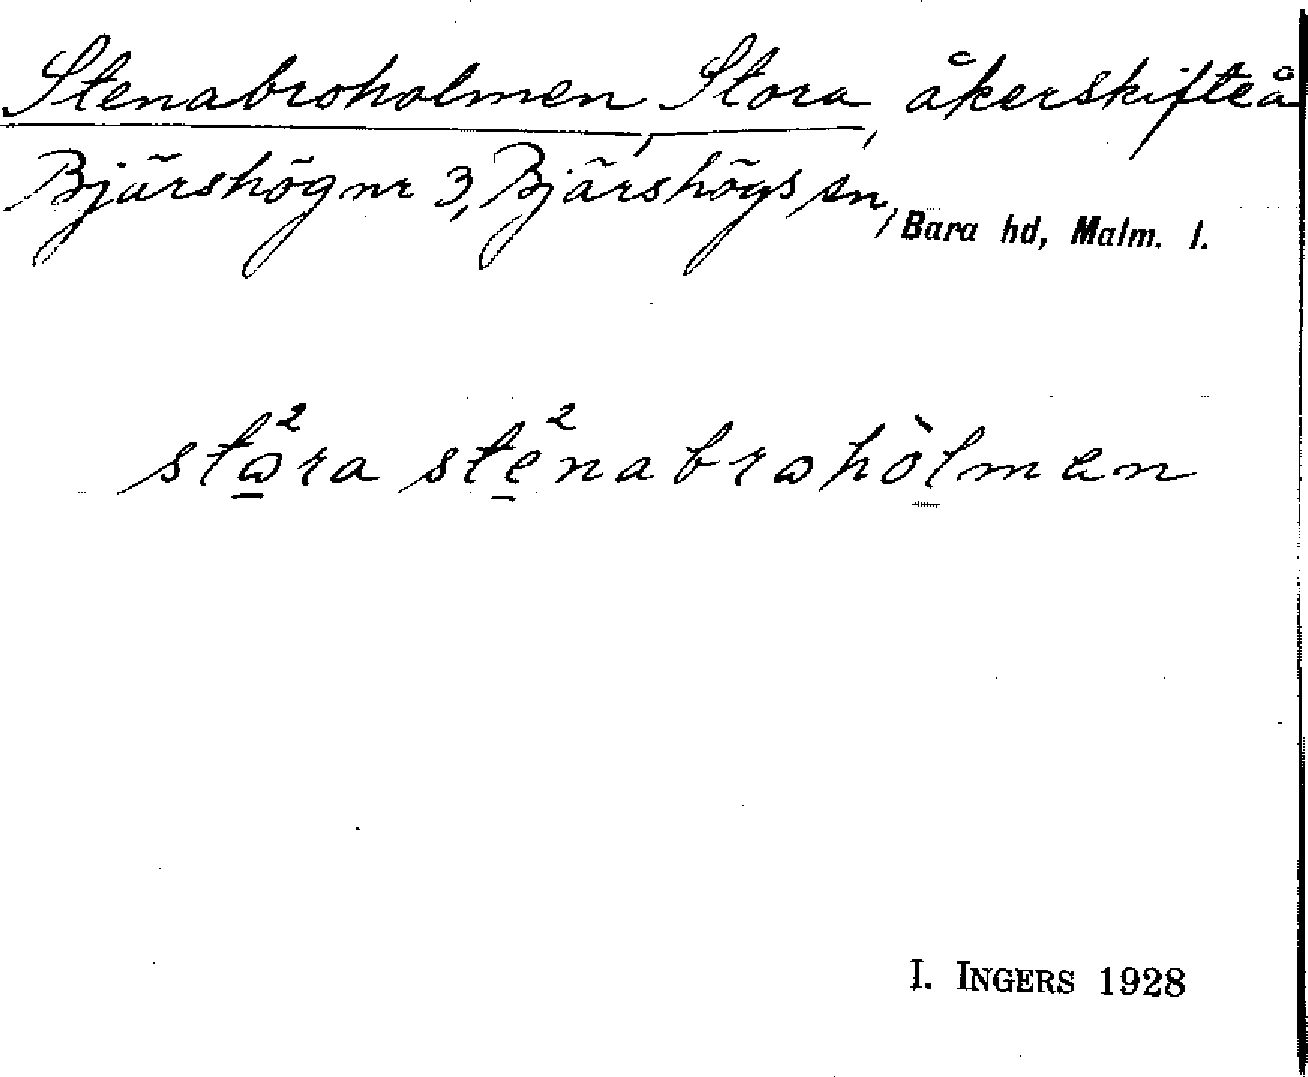 Stenabroholmen, Stora, åkerskifte å
Bjärshög nr 3, Bjärshögs sn, Bara hd, Malm. l.
stɷ²ra ste²nabrɷhòlmen
I. INGERS 1928